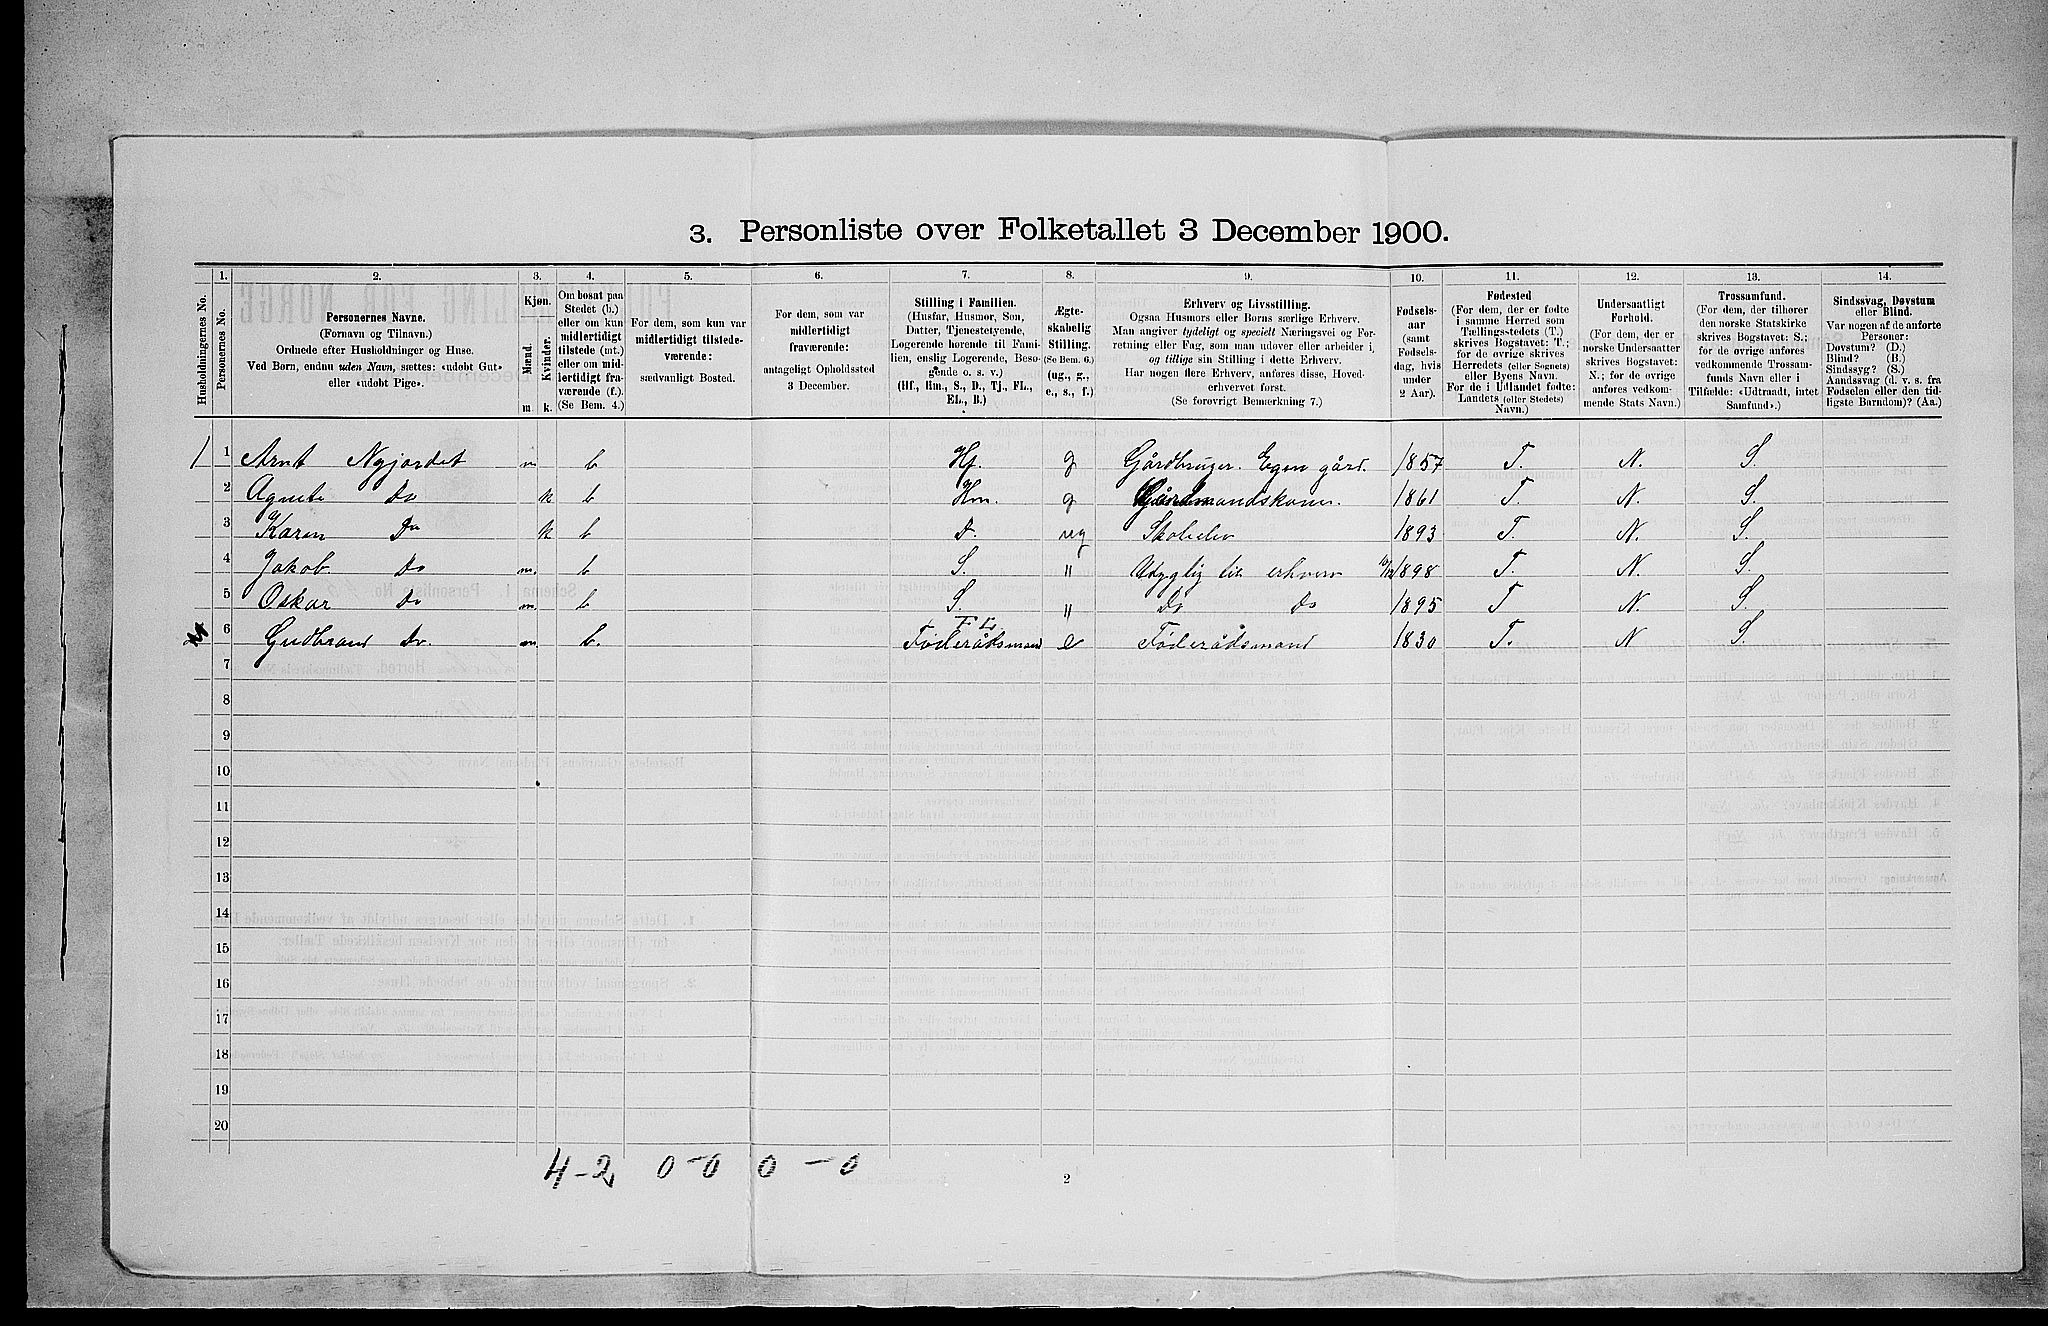 3. Personliste over Folketallet 3 December 1900.
1. 2. 3. 4. 5. 6. 7. 8. 9. 10. 11. 12. 13. 14.
Husholdningernes No.
Personernes No.
Personernes Navne.
(Fornavn og Tilnavn.)
Ordnede efter Husholdninger og Huse.
Ved Børn, endnu uden Navn, sættes: «udøbt Gut»
eller «udøbt Pige».
Kjøn.
Mænd.
Kvinder.
m. k.
Om bosat paa
Stedet (b.)
eller om kun
midlertidigt
tilstede (mt.)
eller om mid-
lertidigt fra-
værende (f.).
(Se Bem. 4.)
For dem, som kun var
midlertidigt tilstede-
værende:
sædvanligt Bosted.
For dem, som var
midlertidigt
fraværende:
antageligt Opholdssted
3 December.
Stilling i Familien.
(Husfar, Husmor, Søn,
Datter, Tjenestetyende,
Logerende hørende til Fami-
lien, enslig Logerende, Besø-
gende o. s. v.)
(Hf., Hm., S., D., Tj., FL.,
EL., B.)
Ægte-
skabelig
Stilling.
(Se Bem. 6.)
(ug., g.,
e., s., f.)
Erhverv og Livsstilling.
Ogsaa Husmors eller Børns særlige Erhverv.
Man angiver tydeligt og specielt Næringsvei og For-
retning eller Fag, som man udøver eller arbeider i,
og tillige sin Stilling i dette Erhverv.
Har nogen flere Erhverv, anføres disse, Hoved-
erhvervet først.
(Se forøvrigt Bemærkning 7.)
Fødsels-
aar
(samt
Fødsels-
dag, hvis
under
2 Aar).
Fødested
(For dem, der er fødte
i samme Herred som
Tællingsstedets (T.)
skrives Bogstavet: T.;
for de øvrige skrives
Herredets (eller Sognets)
eller Byens Navn.
For de i Udlandet fødte:
Landets (eller Stedets)
Navn.)
Undersaatligt
Forhold.
(For dem, der er
norske Undersaatter
skrives Bogstavet:
N.; for de øvrige
anføres vedkom-
mende Stats Navn.)
Trossamfund.
(For dem, der tilhører
den norske Statskirke
skrives Bogstavet: S.;
for de øvrige anføres
vedkommende Trossam-
funds Navn eller i
Tilfælde: «Udtraadt, intet
Samfund».)
Sindssvag, Døvstum
eller Blind.
Var nogen af de anførte
Personer:
Døvstum? (D.)
Blind? (B.)
Sindssyg? (S.)
Aandssvag (d. v. s. fra
Fødselen eller den tid-
ligste Barndom)? (Aa.)
1 1 Arnt Nyjordet m b Hf. g Gårdbruger. Egen gård. 1857 T. N. S.
2 Agnete Do k b Hm. g Gårdmandskone. 1861 T. N. S.
3 Karen Do k b D. ug Skoleelev 1893 T. N. S.
4 Jakob Do m. b S. " Udyglig til erhverv 10/12 1898 T. N. S.
5 Oskar Do m. b S. " Do Do 1895 T N. S.
FL.
6 Gudbrand Do. m. b. Føderådsmand e Føderådsmand 1830 T. N S.
7
8
9
10
11
12
13
14
15
16
17
18
19
20
4-2 0-0 0-0
2